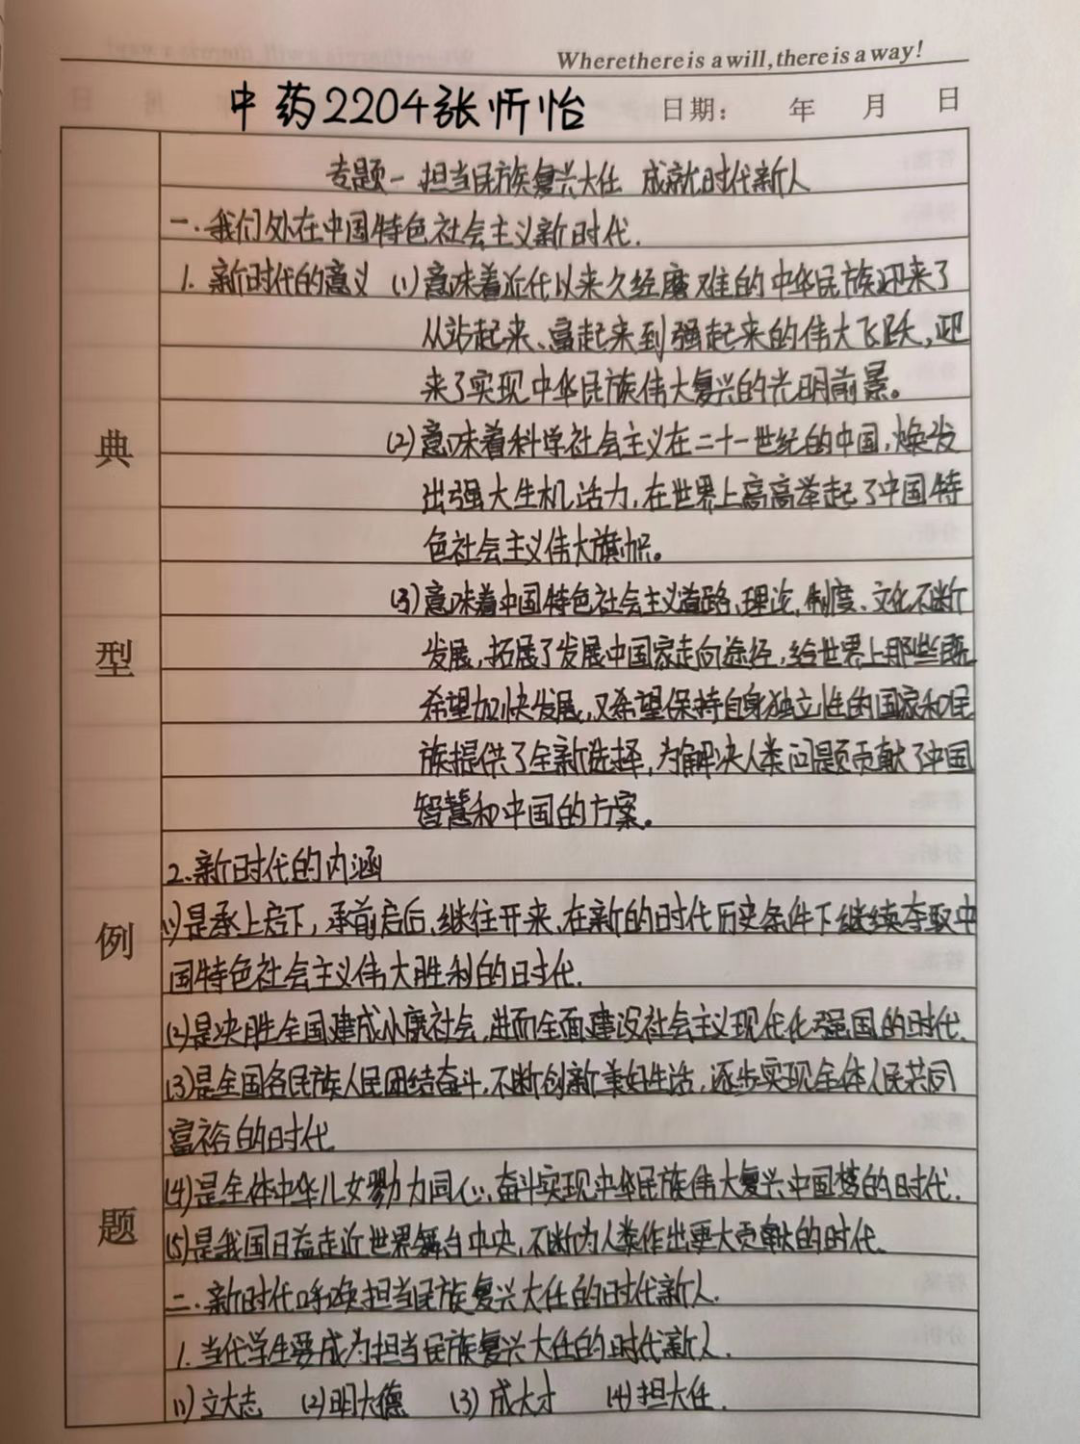 Wherethere is a will, there is a way!
中药2204张忻怡 日期： 年 月 日
专题一 担当民族复兴大任 成就时代新人
一.我们处在中国特色社会主义新时代.
1. 新时代的意义 (1)意味着近代以来久经磨难的中华民族迎来了
从站起来、富起来到强起来的伟大飞跃,迎
来了实现中华民族伟大复兴的光明前景。
(2)意味着科学社会主义在二十一世纪的中国,焕发
出强大生机活力,在世界上高高举起了中国特
色社会主义伟大旗帜。
(3)意味着中国特色社会主义道路、理论、制度、文化不断
发展,拓展了发展中国家走向途径,给世界上那些既
希望加快发展,又希望保持自身独立性的国家和民
族提供了全新选择,为解决人类问题贡献了中国
智慧和中国的方案。
2.新时代的内涵
(1)是承上启下,承前启后,继往开来,在新的时代历史条件下继续夺取中
国特色社会主义伟大胜利的时代.
(2)是决胜全国建成小康社会,进而全面建设社会主义现代化强国的时代.
(3)是全国各民族人民团结奋斗,不断创新美好生活,逐步实现全体人民共同
富裕的时代
(4)是全体中华儿女勠力同心,奋斗实现中华民族伟大复兴中国梦的时代.
(5)是我国日益走近世界舞台中央,不断为人类作出更大贡献的时代.
二.新时代呼唤担当民族复兴大任的时代新人.
1.当代学生要成为担当民族复兴大任的时代新人.
(1)立大志 (2)明大德 (3)成大才 (4)担大任.
典
型
例
题